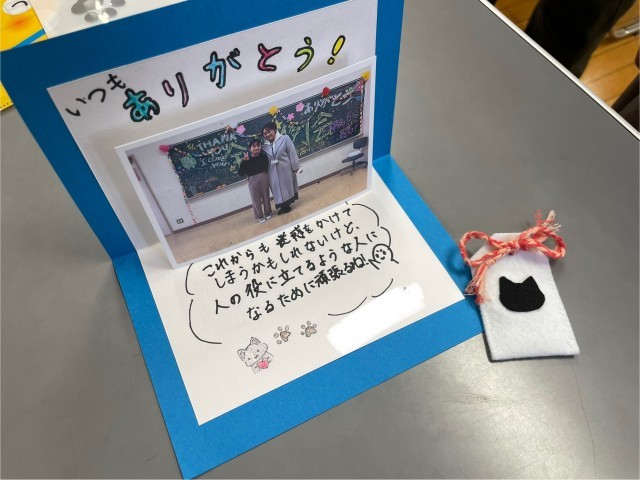 いつも
ありがとう!
THANK
YOU
ありがとう
これからも迷惑をかけて
しまうかもしれないけど、
人の役に立てるような人に
なるために頑張るね!